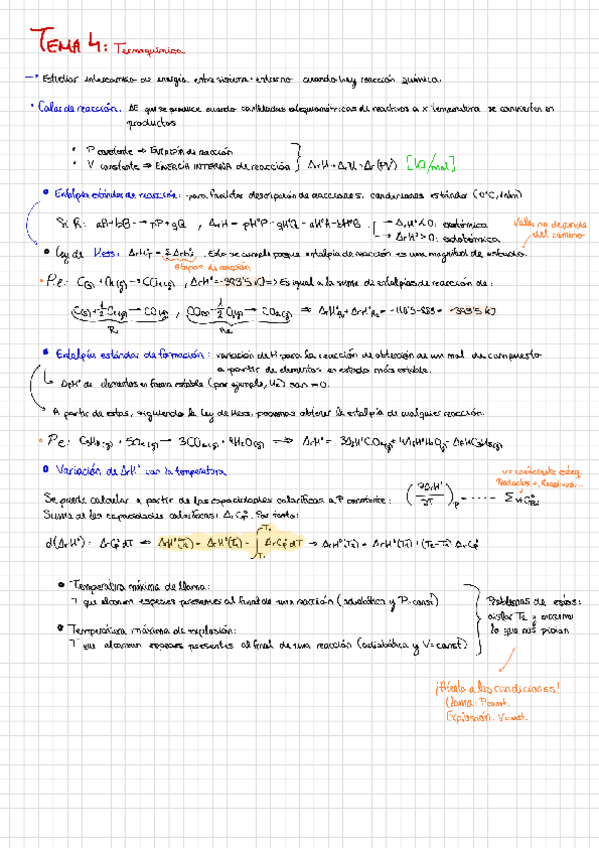 TEMA 4: Termoquímica
→ Estudiar intercambio de energía entre sistema-entorno cuando hay reacción química.
• Calor de reacción. ΔE que se produce cuando cantidades estequiométricas de reactivos a x temperatura se convierten en
productos
• P constante ⇒ ENTALPÍA de reacción
• V constante ⇒ ENERGÍA INTERNA de reacción } ΔrH = ΔrU + Δr(PV) [kJ/mol]
• Entalpía estándar de reacción: para facilitar descripción de reacciones. condiciones estándar (0°C, 1atm)
Si R: aA+bB → pP+qQ , ΔrH = pH°P + qH°Q - aH°A - bH°B. → ΔrH°<0: exotérmica
→ ΔrH°>0: endotérmica
Valor no depende
del camino
• Ley de Hess: ΔrH°T = ΣΔrH°i. Esto se cumple porque entalpía de reacción es una magnitud de estado.
etapas de reacción
• P.e: C(s) + O2(g) → CO2(g) , ΔrH° = -393'5 kJ ⇒ Es igual a la suma de entalpías de reacción de:
C(s) + 1/2 O2(g) → CO(g) , CO(g) + 1/2 O2(g) → CO2(g) ⇒ ΔrH°R1 + ΔrH°R2 = -110'5-283 = -393'5 kJ
R R2
• Entalpía estándar de formación: variación de H para la reacción de obtención de un mol de compuesto
a partir de elementos en estado más estable.
ΔfH° de elementos en forma estable (por ejemplo, H2) son = 0.
A partir de estas, siguiendo la ley de Hess, podemos obtener la entalpía de cualquier reacción.
• P.e: C3H8(g) + 5O2(g) → 3CO2(g) + 4H2O(g) ⇒ ΔrH° = 3ΔfH°CO2(g) + 4ΔfH°H2O(g) - ΔfH°C3H8(g)
• Variación de ΔrH° con la temperatura
Se puede calcular a partir de las capacidades caloríficas a P constante: (∂ΔrH°/∂T)p = ..... Σ
Productos +, Reactivos -
Suma de las capacidades caloríficas: ΔrC°p. Por tanto:
d(ΔrH°) = ΔrC°p dT ⇒ ΔrH°(T2) = ΔrH°(T1) + ∫T1T2 ΔrC°p dT → ΔrH°(T2) = ΔrH°(T1) + (T2-T1) ΔrC°p
• Temperatura máxima de llama:
T que alcanzan especies presentes al final de una reacción (adiabática y P=const)
• Temperatura máxima de explosión:
T que alcanzan especies presentes al final de una reacción (adiabática y V=const)
Problemas de esto:
aislar T2 y
lo que nos pidan
¡Atento a las condiciones!
Llama: P const.
Explosión: V const.